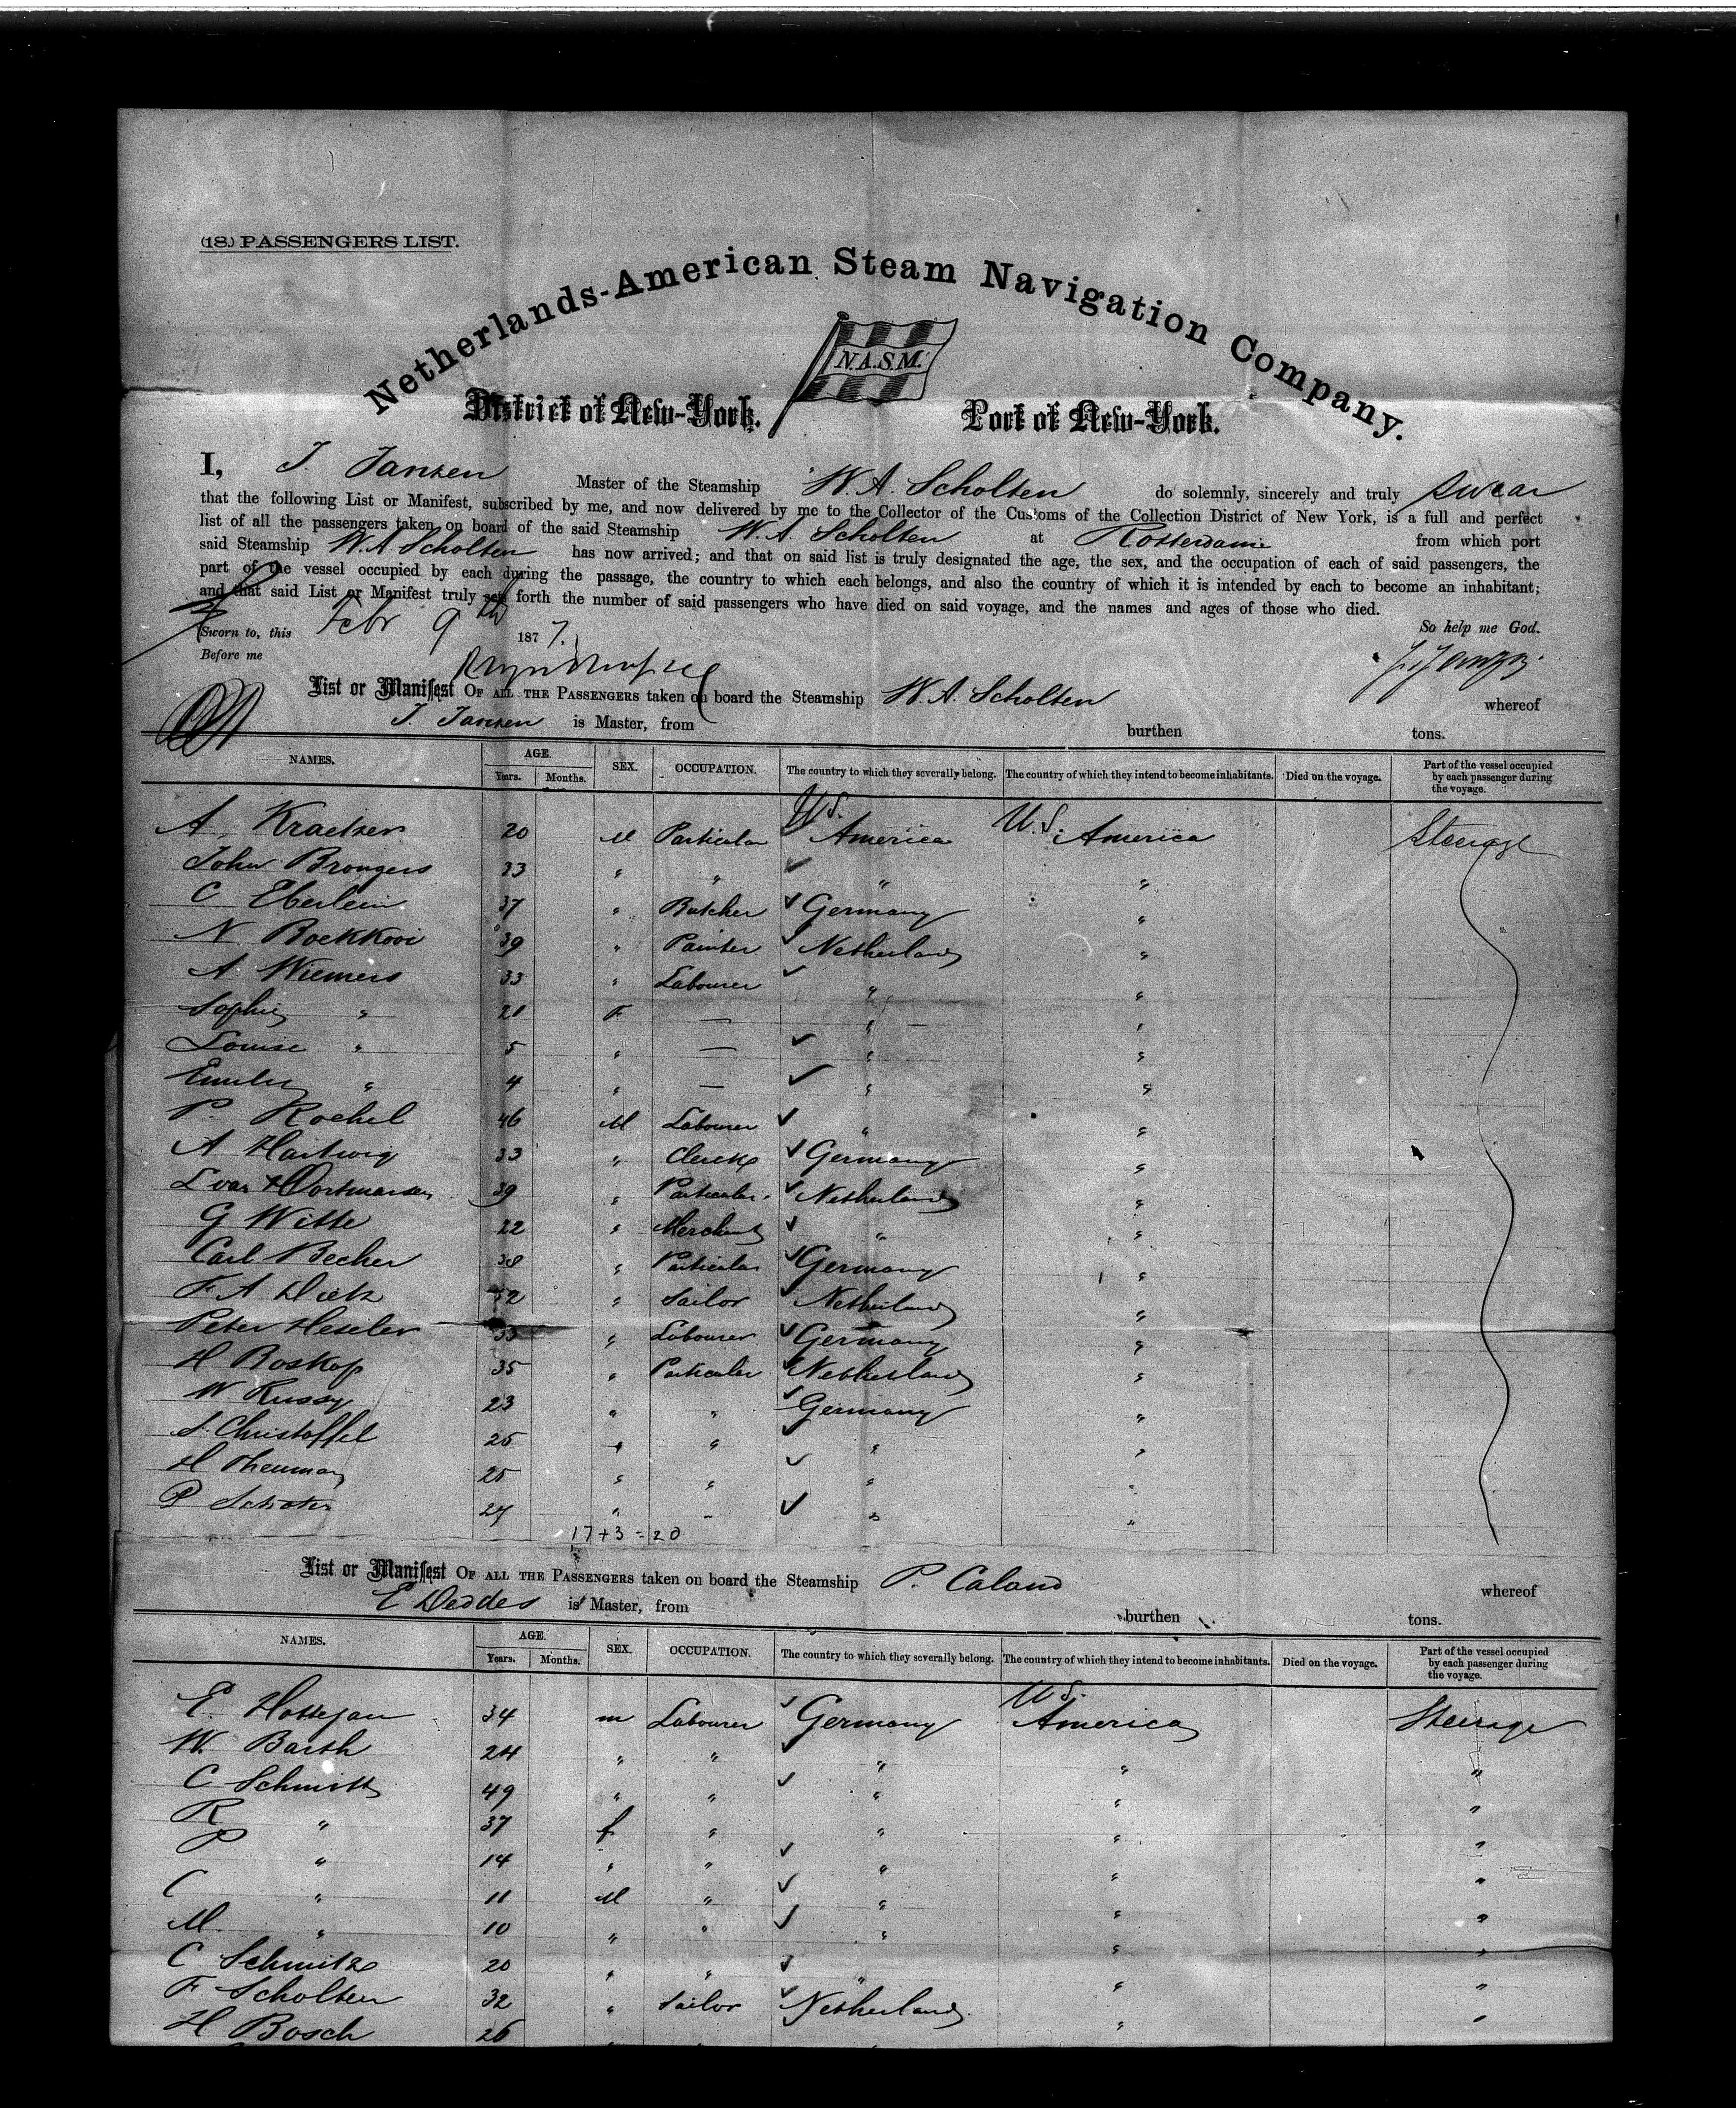 (18.) PASSENGERS LIST.
Netherlands-American Steam Navigation Company.
N.A.S.M.
District of New-York. Port of New-York.
I, J. Jansen Master of the Steamship W. A. Scholten do solemnly, sincerely and truly swear
that the following List or Manifest, subscribed by me, and now delivered by me to the Collector of the Customs of the Collection District of New York, is a full and perfect
list of all the passengers taken on board of the said Steamship W. A. Scholten at Rotterdam from which port
said Steamship W. A Scholten has now arrived; and that on said list is truly designated the age, the sex, and the occupation of each of said passengers, the
part of the vessel occupied by each during the passage, the country to which each belongs, and also the country of which it is intended by each to become an inhabitant;
and that said List or Manifest truly sets forth the number of said passengers who have died on said voyage, and the names and ages of those who died.
Sworn to, this Febr 9th 1877. So help me God.
Before me J. Jansen
List or Manifest OF ALL THE PASSENGERS taken on board the Steamship W. A. Scholten whereof
J. Jansen is Master, from burthen tons.
NAMES. AGE. Years. Months. SEX. OCCUPATION. The country to which they severally belong. The country of which they intend to become inhabitants. Died on the voyage. Part of the vessel occupied by each passenger during the voyage.
A. Kraetzer 20 M Particular U.S. America U.S. America Steerage
John Brongers 33 " " " "
C Eberlein 37 " Butcher Germany "
N Boekkooi 39 " Painter Netherland "
A Wiemers 33 " Labourer " "
Sophie " 21 F — " "
Louise " 5 " — " "
Emily " 4 " — " "
P. Rochel 46 M Labourer " "
A Hartwig 33 " Clerck Germany "
L van 39 " Particular Netherland "
G Witte 22 " Merchant " "
Carl Becher 38 " Particular Germany "
F. A Dietz 52 " Sailor Netherland "
Peter Heseler 33 " Labourer Germany "
H Boskop 35 " Particular Netherland "
W Russy 23 " " Germany "
S. Christoffel 25 " " " "
H Theuman 25 " " " "
P 27 " " " "
17+3=20
List or Manifest OF ALL THE PASSENGERS taken on board the Steamship P. Caland whereof
E Deddes is Master, from burthen tons.
NAMES. AGE. Years. Months. SEX. OCCUPATION. The country to which they severally belong. The country of which they intend to become inhabitants. Died on the voyage. Part of the vessel occupied by each passenger during the voyage.
E. Hottejan 34 m Labourer Germany U.S. America Steerage
W. Barth 24 " " " " "
C Schmitt 49 " " " " "
R " 37 f " " " "
P " 14 " " " " "
C " 11 M " " " "
M " 10 " " " " "
C Schmitz 20 " " " " "
F. Scholten 32 " Sailor Netherland " "
H Bosch 26